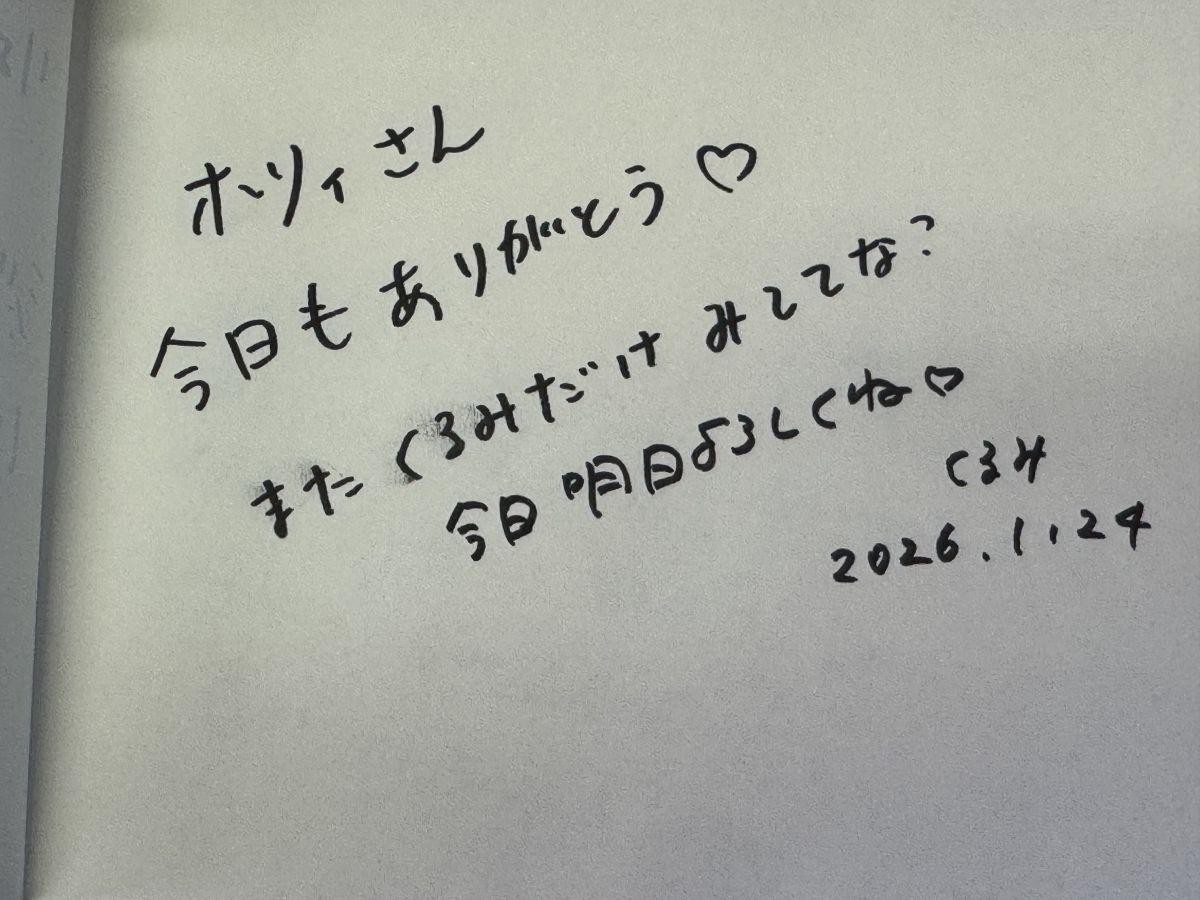 ホリィさん
今日もありがとう♡
またくるみだけみててな?
今日明日よろしくね♡
くるみ
2026.1.24